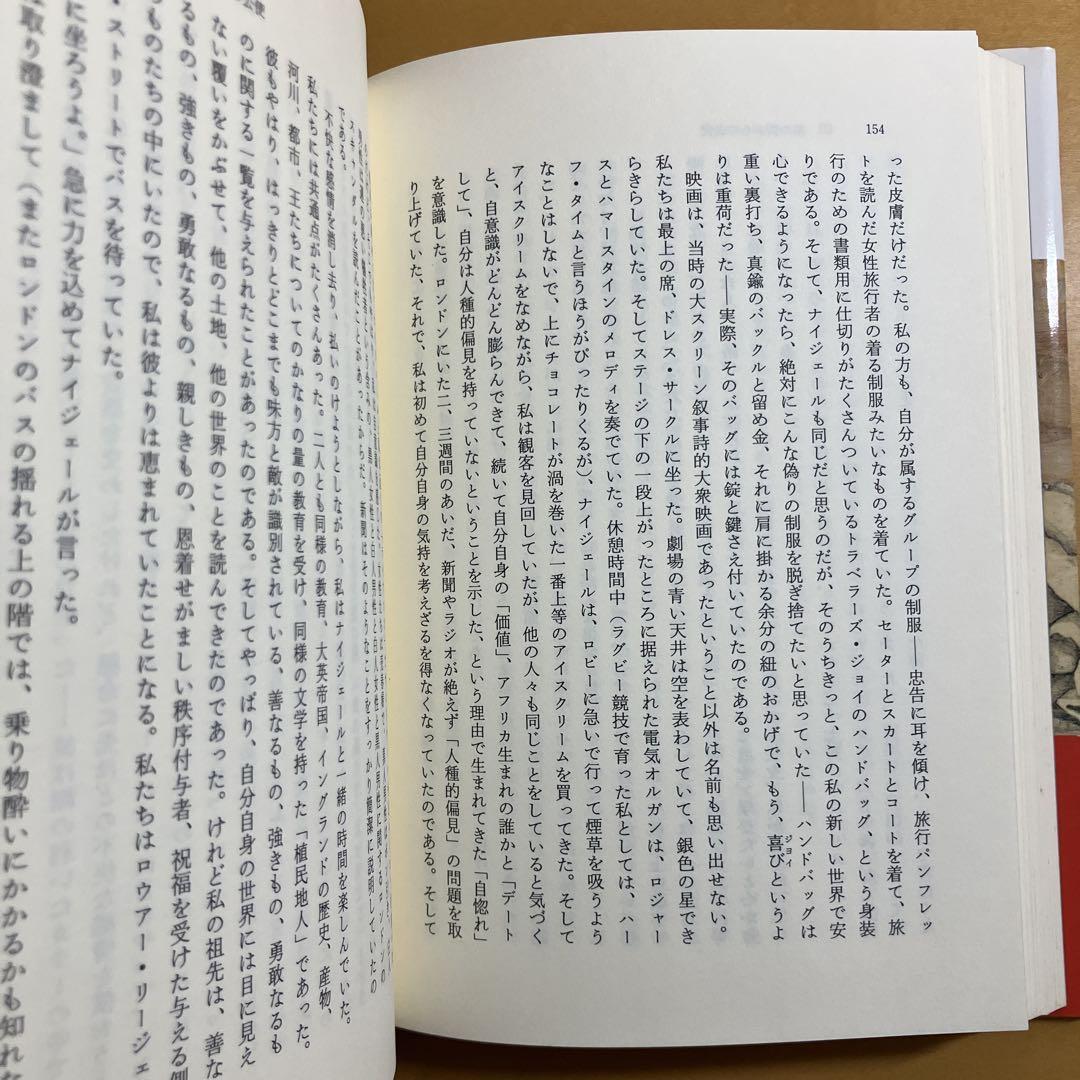 154
った皮膚だけだった。私の方も、自分が属するグループの制服――忠告に耳を傾け、旅行パンフレッ
トを読んだ女性旅行者の着る制服みたいなものを着ていた。セーターとスカートとコートを着て、旅
行のための書類用に仕切りがたくさんついているトラベラーズ・ジョイのハンドバッグ、という身装
りである。そして、ナイジェールも同じだと思うのだが、そのうちきっと、この私の新しい世界で安
心できるようになったら、絶対にこんな偽りの制服を脱ぎ捨てたいと思っていた――ハンドバッグは
重い裏打ち、真鍮のバックルと留め金、それに肩に掛かる余分の紐のおかげで、もう、喜びというよ
ジョイ
りは重荷だった――実際、そのバッグには錠と鍵さえ付いていたのである。
映画は、当時の大スクリーン叙事詩的大衆映画であったということ以外は名前も思い出せない。
私たちは最上の席、ドレス・サークルに坐った。劇場の青い天井は空を表わしていて、銀色の星でき
らきらしていた。そしてステージの下の一段上がったところに据えられた電気オルガンは、ロジャー
スとハマースタインのメロディを奏でていた。休憩時間中（ラグビー競技で育った私としては、ハー
フ・タイムと言うほうがぴったりくるが）、ナイジェールは、ロビーに急いで行って煙草を吸うよう
なことはしないで、上にチョコレートが渦を巻いた一番上等のアイスクリームを買ってきた。そして
アイスクリームをなめながら、私は観客を見回していたが、他の人々も同じことをしていると気づく
と、自意識がどんどん膨らんできて、続いて自分自身の「価値」、アフリカ生まれの誰かと「デート
して」、自分は人種的偏見を持っていないということを示した、という理由で生まれてきた「自惚れ」
を意識した。ロンドンにいた二、三週間のあいだ、新聞やラジオが絶えず「人種的偏見」の問題を取
り上げていた、それで、私は初めて自分自身の気持を考えざるを得なくなっていたのである。そして
スキャンダルを読んだことがあったからだ。新聞はそのようなことをすっかり簡潔に説明していたの
である。
不快な感情を消し去り、払いのけようとしながら、私はナイジェールと一緒の時間を楽しんでいた。
私たちには共通点がたくさんあった。二人とも同様の教育、大英帝国、イングランドの歴史、産物、
河川、都市、王たちについてのかなりの量の教育を受け、同様の文学を持った「植民地人」であった。
彼もやはり、はっきりとどこまでも味方と敵が識別されている、善なるもの、強きもの、勇敢なるも
のに関する一覧を与えられたことがあったのである。そしてやっぱり、自分自身の世界には目に見え
ない覆いをかぶせて、他の土地、他の世界のことを読んできたのであった。けれど私の祖先は、善な
るもの、強きもの、勇敢なるもの、親しきもの、恩着せがましい秩序付与者、祝福を受けた与える側
ものたちの中にいたので、私は彼よりは恵まれていたことになる。私たちはロウアー・リージェ
・ストリートでバスを待っていた。
に坐ろうよ。」急に力を込めてナイジェールが言った。
取り澄まして（またロンドンのバスの揺れる上の階では、乗り物酔いにかかるかも知れな